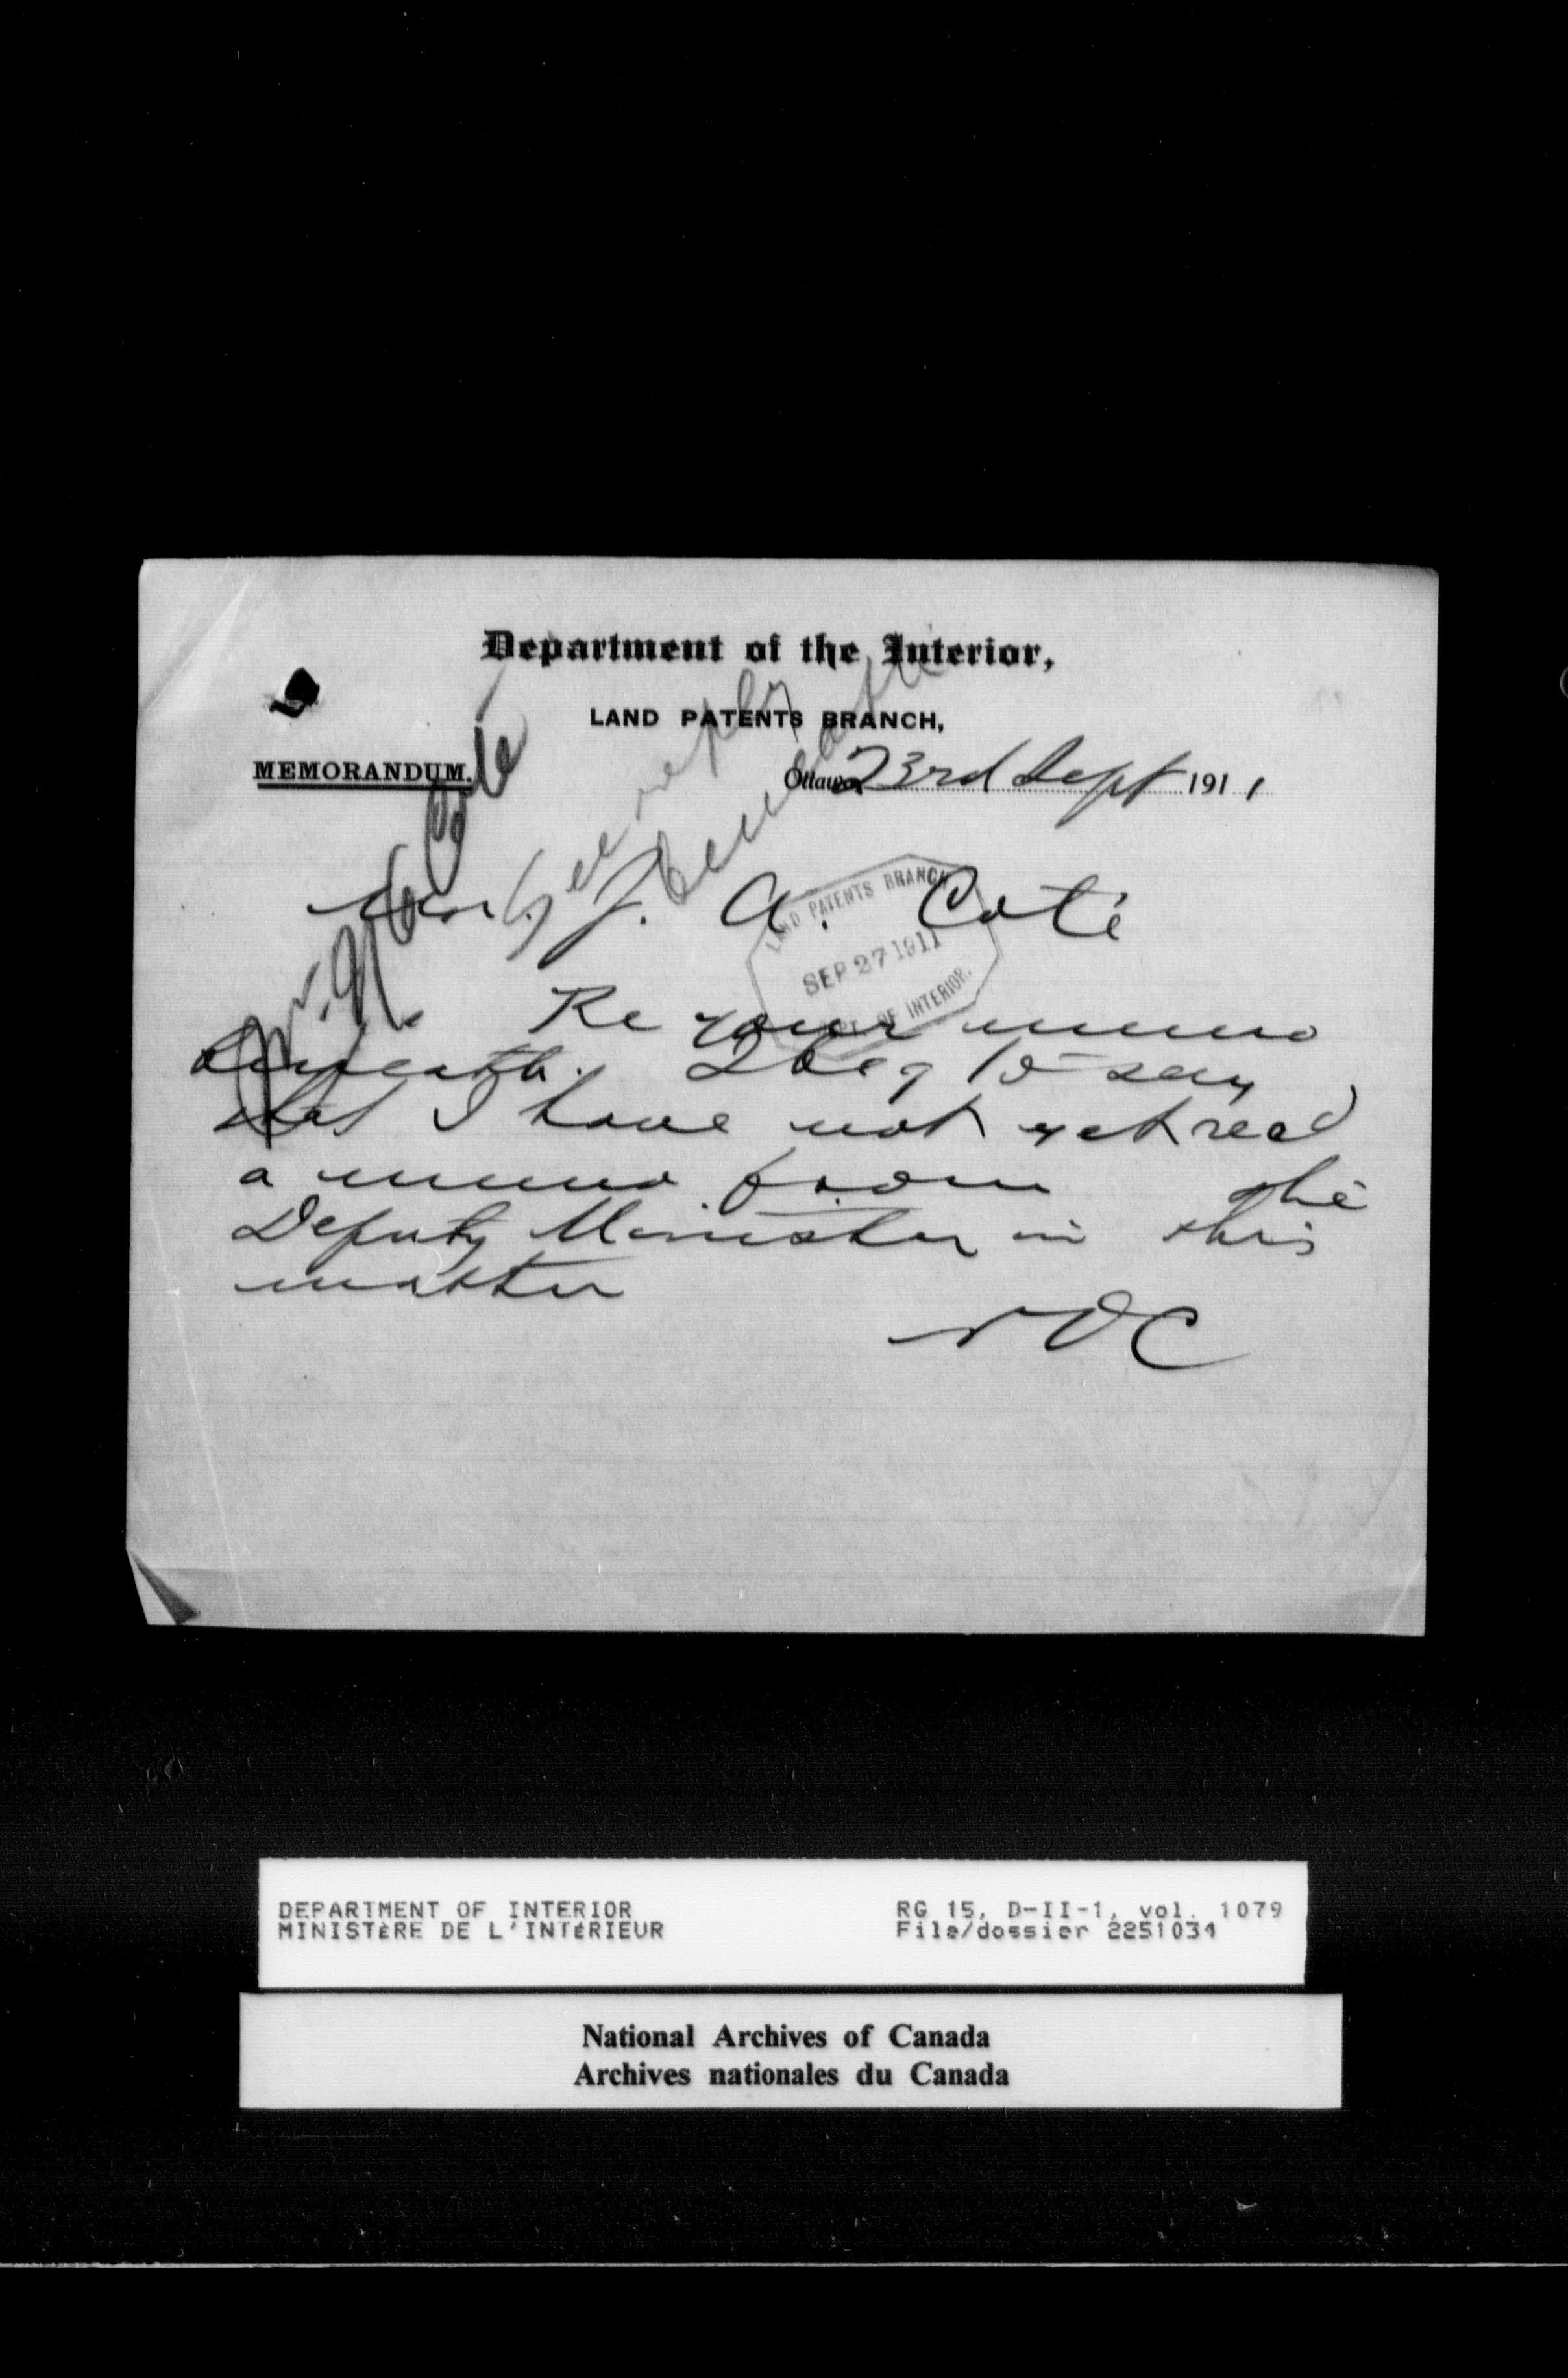 Department of the Interior,
LAND PATENTS BRANCH,
MEMORANDUM.
Ottawa, 23rd Sept 1911
Mr. J. A. Coté
LAND PATENTS BRANCH
SEP 27 1911
DEPT. OF INTERIOR.
See reply
beneath
Re your memo
beneath. I beg to say
that I have not yet recd
a memo from the
Deputy Minister in this
matter
NOC
DEPARTMENT OF INTERIOR
MINISTÈRE DE L'INTÉRIEUR
RG 15, D-II-1, vol. 1079
File/dossier 2251034
National Archives of Canada
Archives nationales du Canada